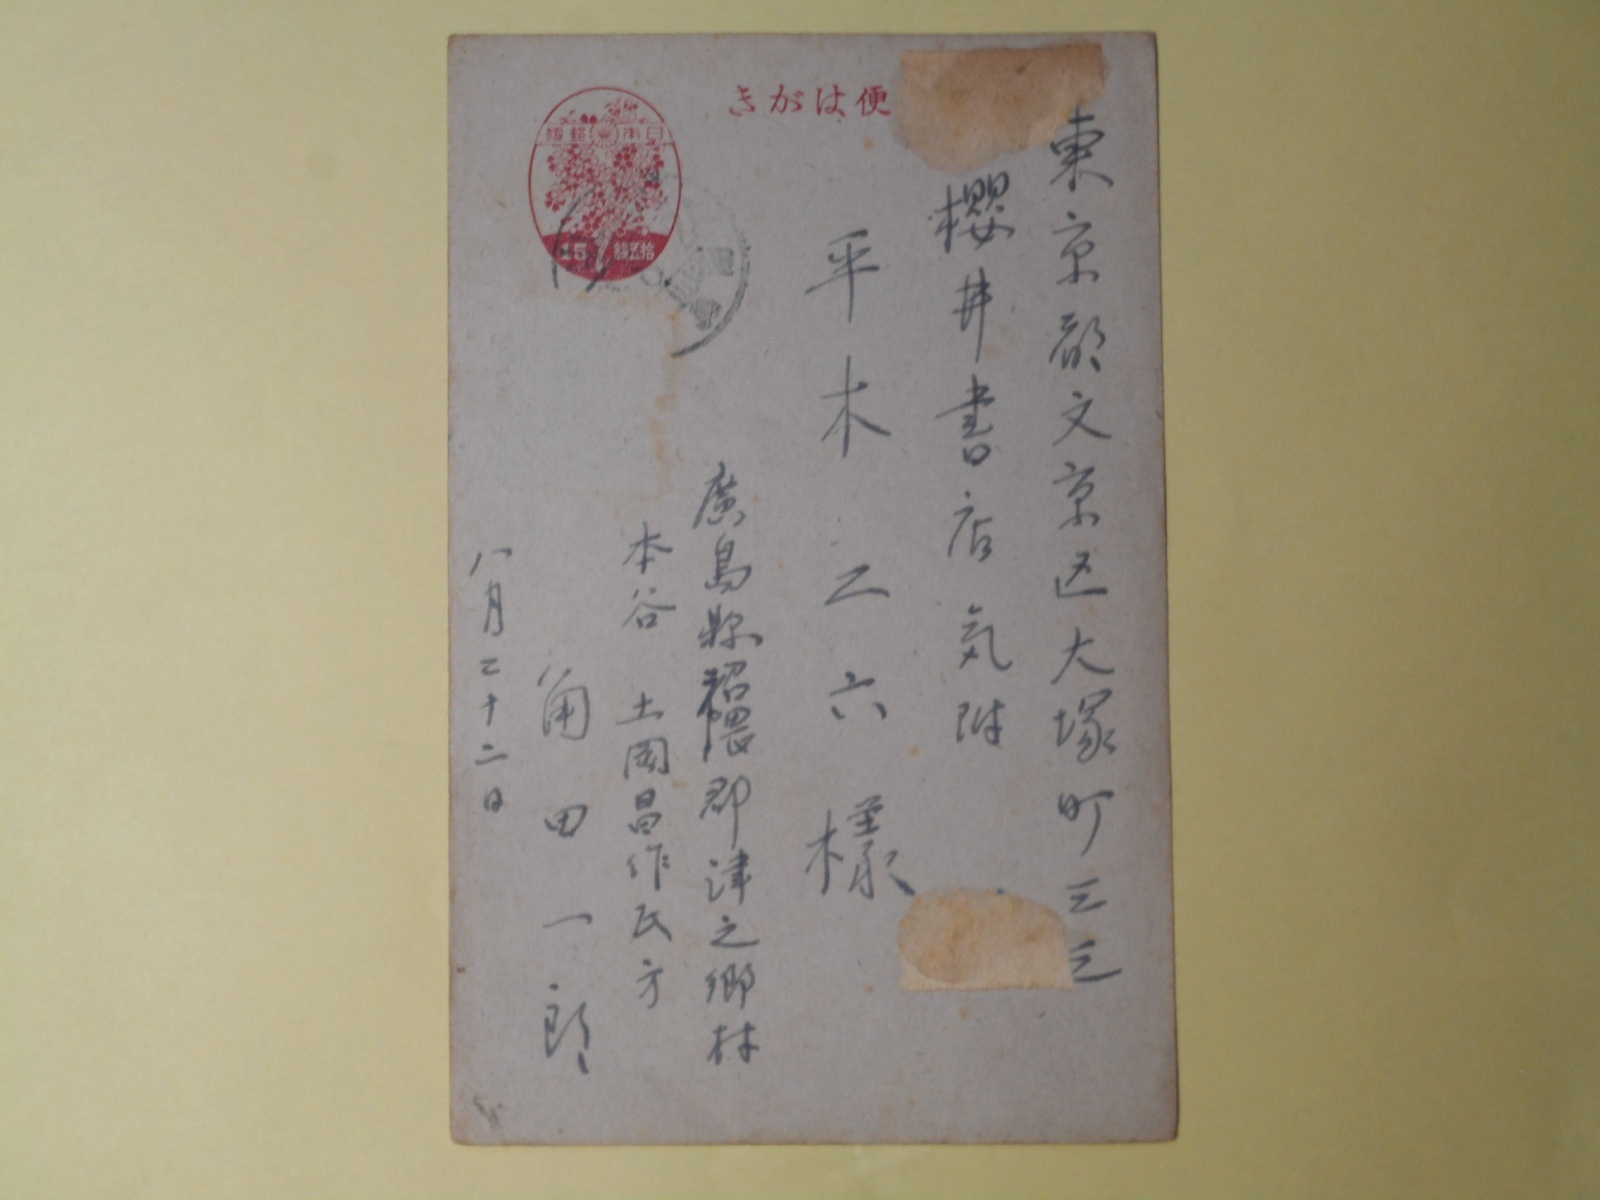 便はがき
日本郵便
拾五錢
15
東京都文京区大塚町三三
櫻井書店気附
平木二六様
廣島縣沼隈郡津之郷村
本谷 土岡昌作氏方
角田一郎
八月二十二日